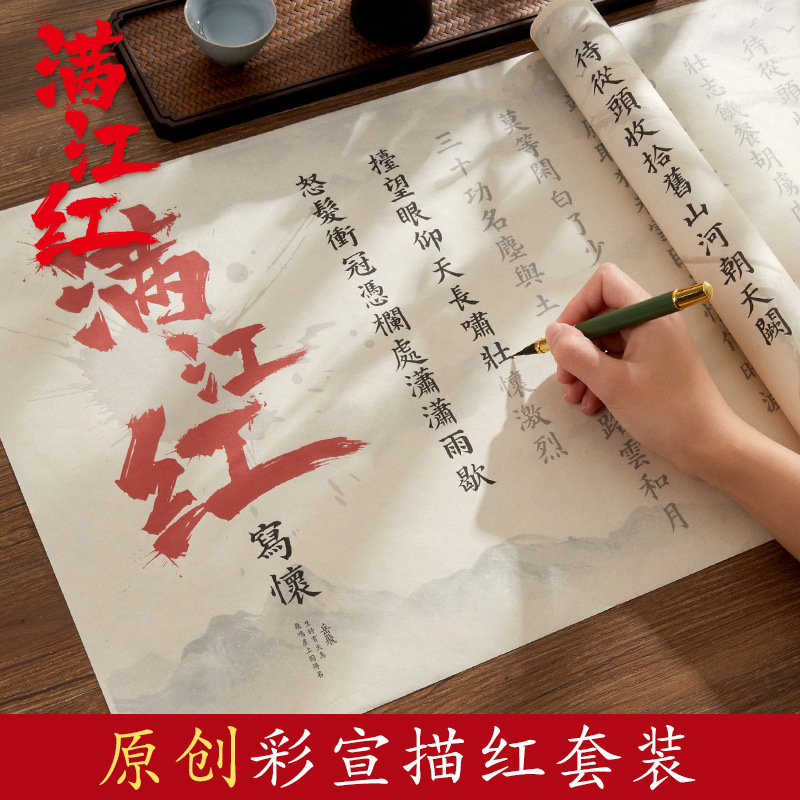 满江红
满江红
寫懷
岳飛
生時有大鳥
飛鳴屋上因得名
怒髮衝冠憑欄處瀟瀟雨歇
擡望眼仰天長嘯壯懷激烈
三十功名塵與土
路雲和月
莫等閑白了少
待從頭收拾舊山河朝天闕
壯志饑餐胡虜
待從頭
原创彩宣描红套装